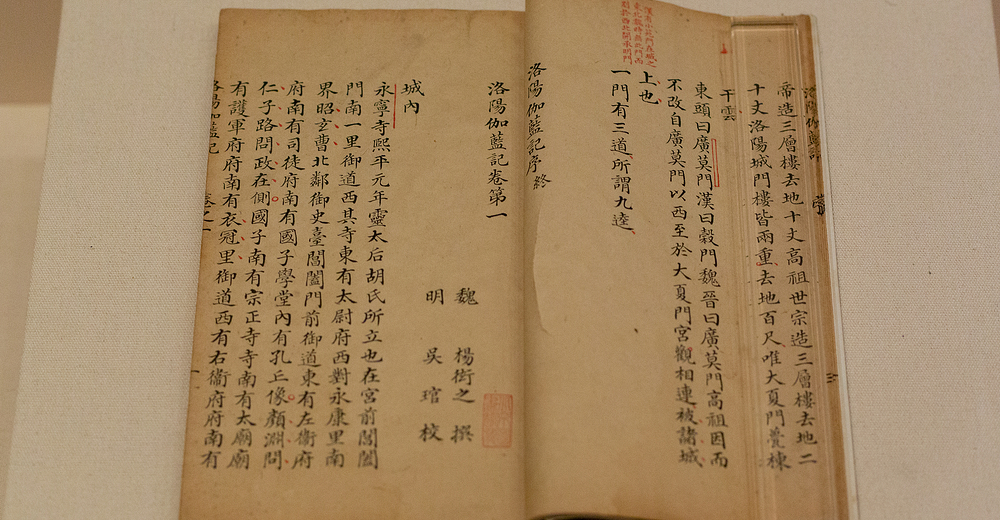 洛陽伽藍記
帝造三層樓去地十丈高祖世宗造三層樓去地二
十丈洛陽城門樓皆兩重去地百尺唯大夏門甍棟
干雲
東頭曰廣莫門漢曰穀門魏晉曰廣莫門高祖因而
不改自廣莫門以西至於大夏門宮觀相連被諸城
上也
一門有三道所謂九逵
洛陽伽藍記序終
洛陽伽藍記卷第一
魏 楊衒之 撰
明 吳琯 校
城內
永寧寺熙平元年靈太后胡氏所立也在宮前閶闔
門南一里御道西其寺東有太尉府西對永康里南
界昭玄曹北鄰御史臺閶闔門前御道東有左衞府
府南有司徒府南有國子學堂內有孔丘像顏淵問
仁子路問政在側國子南有宗正寺寺南有太廟廟
有護軍府府南有衣冠里御道西有右衞府府南有
洛陽伽藍記 卷之一